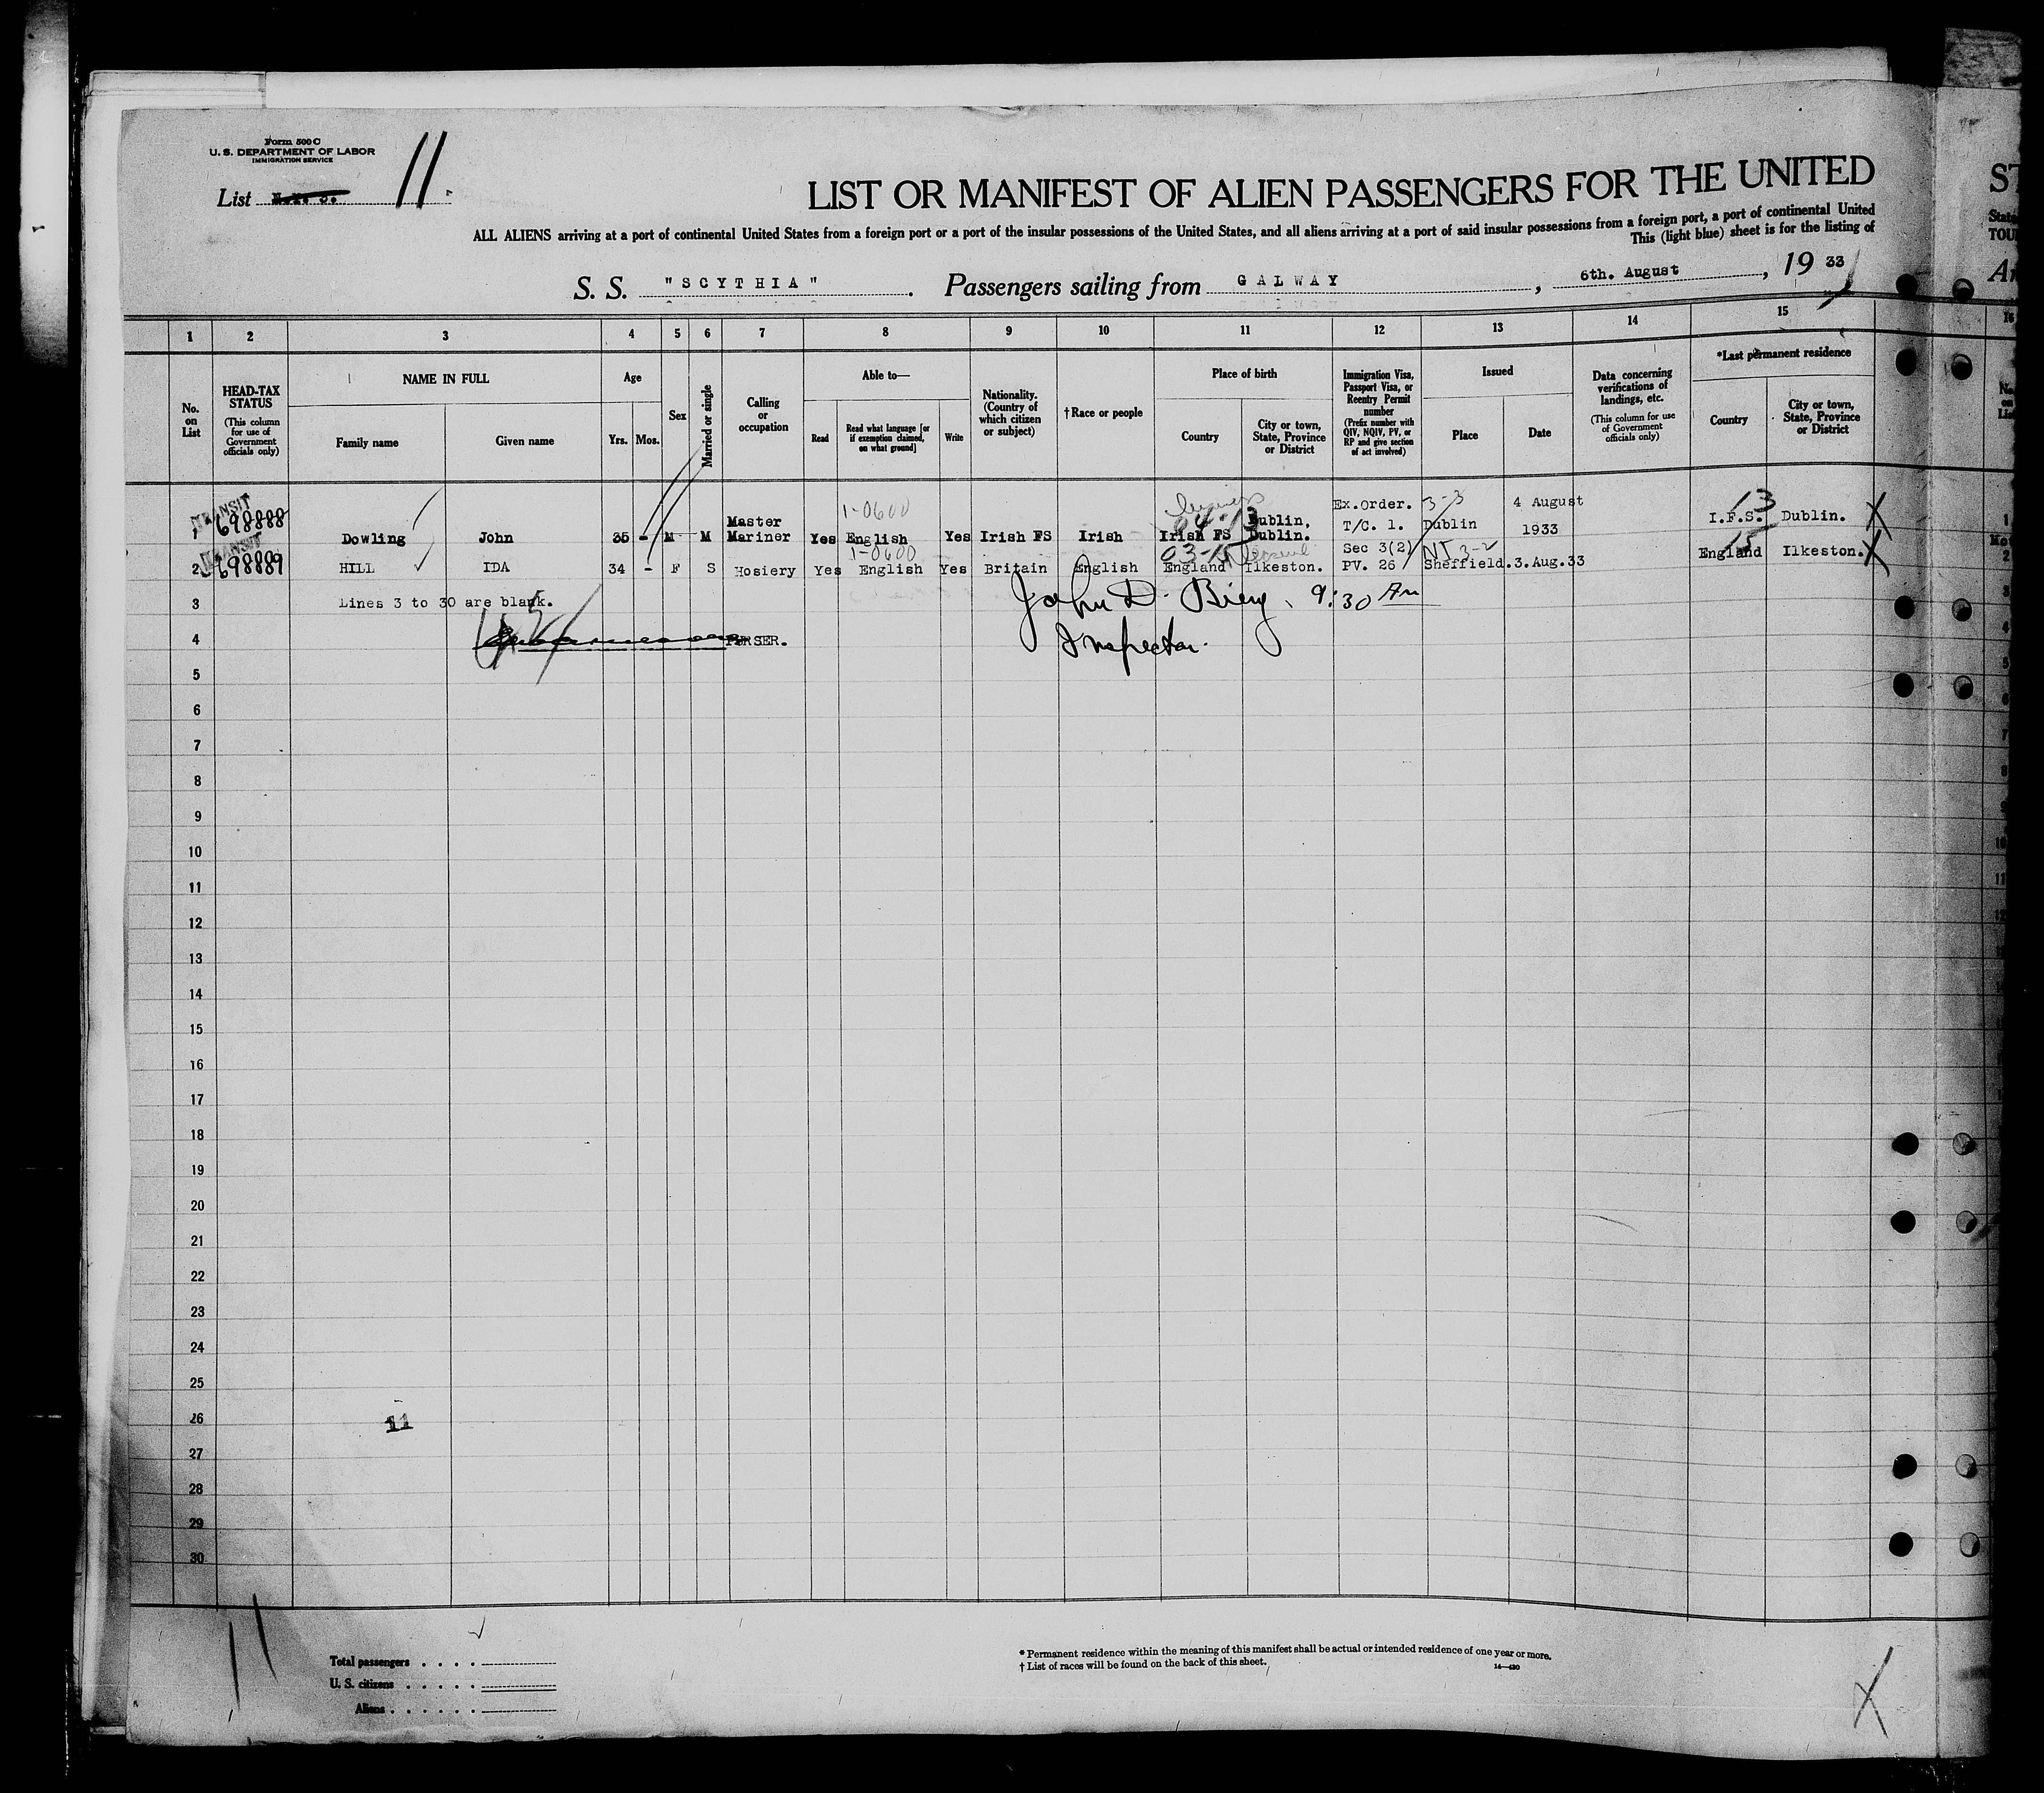 Form 500 C
U. S. DEPARTMENT OF LABOR
IMMIGRATION SERVICE
List 11.
LIST OR MANIFEST OF ALIEN PASSENGERS FOR THE UNITED
ALL ALIENS arriving at a port of continental United States from a foreign port or a port of the insular possessions of the United States, and all aliens arriving at a port of said insular possessions from a foreign port, a port of continental United
This (light blue) sheet is for the listing of
S. S. "SCYTHIA". Passengers sailing from GALWAY, 6th. August, 19 33
1 2 3 4 5 6 7 8 9 10 11 12 13 14 15 16
No. on List
HEAD-TAX STATUS
(This column for use of Government officials only)
NAME IN FULL
Family name
Given name
Age
Yrs. Mos.
Sex
Married or single
Calling or occupation
Able to—
Read
Read what language [or if exemption claimed, on what ground]
Write
Nationality. (Country of which citizen or subject)
†Race or people
Place of birth
Country
City or town, State, Province or District
Immigration Visa, Passport Visa, or Reentry Permit number
(Prefix number with QIV, NQIV, PV, or RP and give section of act involved)
Issued
Place
Date
Data concerning verifications of landings, etc.
(This column for use of Government officials only)
*Last permanent residence
Country
City or town, State, Province or District
1 TRANSIT 698888 Dowling John 35 - M M Master Mariner Yes 1-0600 English Yes Irish FS Irish Irish FS Dublin, Dublin. Ex.Order. T/C. 1. 3-3 Dublin 4 August 1933 13 I.F.S. Dublin. X
2 TRANSIT 698889 HILL IDA 34 - F S Hosiery Yes 1-0600 English Yes Britain English 03-15 England Ilkeston. Sec 3(2) PV. 26 NI 3-2 Sheffield. 3. Aug. 33 15 England Ilkeston. X
3 Lines 3 to 30 are blank.
John D. 9:30 Am
4 PURSER.
Inspector.
5
6
7
8
9
10
11
12
13
14
15
16
17
18
19
20
21
22
23
24
25
26 11
27
28
29
30
11
Total passengers . . . .
U. S. citizens . . . . .
Aliens . . . . . .
* Permanent residence within the meaning of this manifest shall be actual or intended residence of one year or more.
† List of races will be found on the back of this sheet.
14—430
X